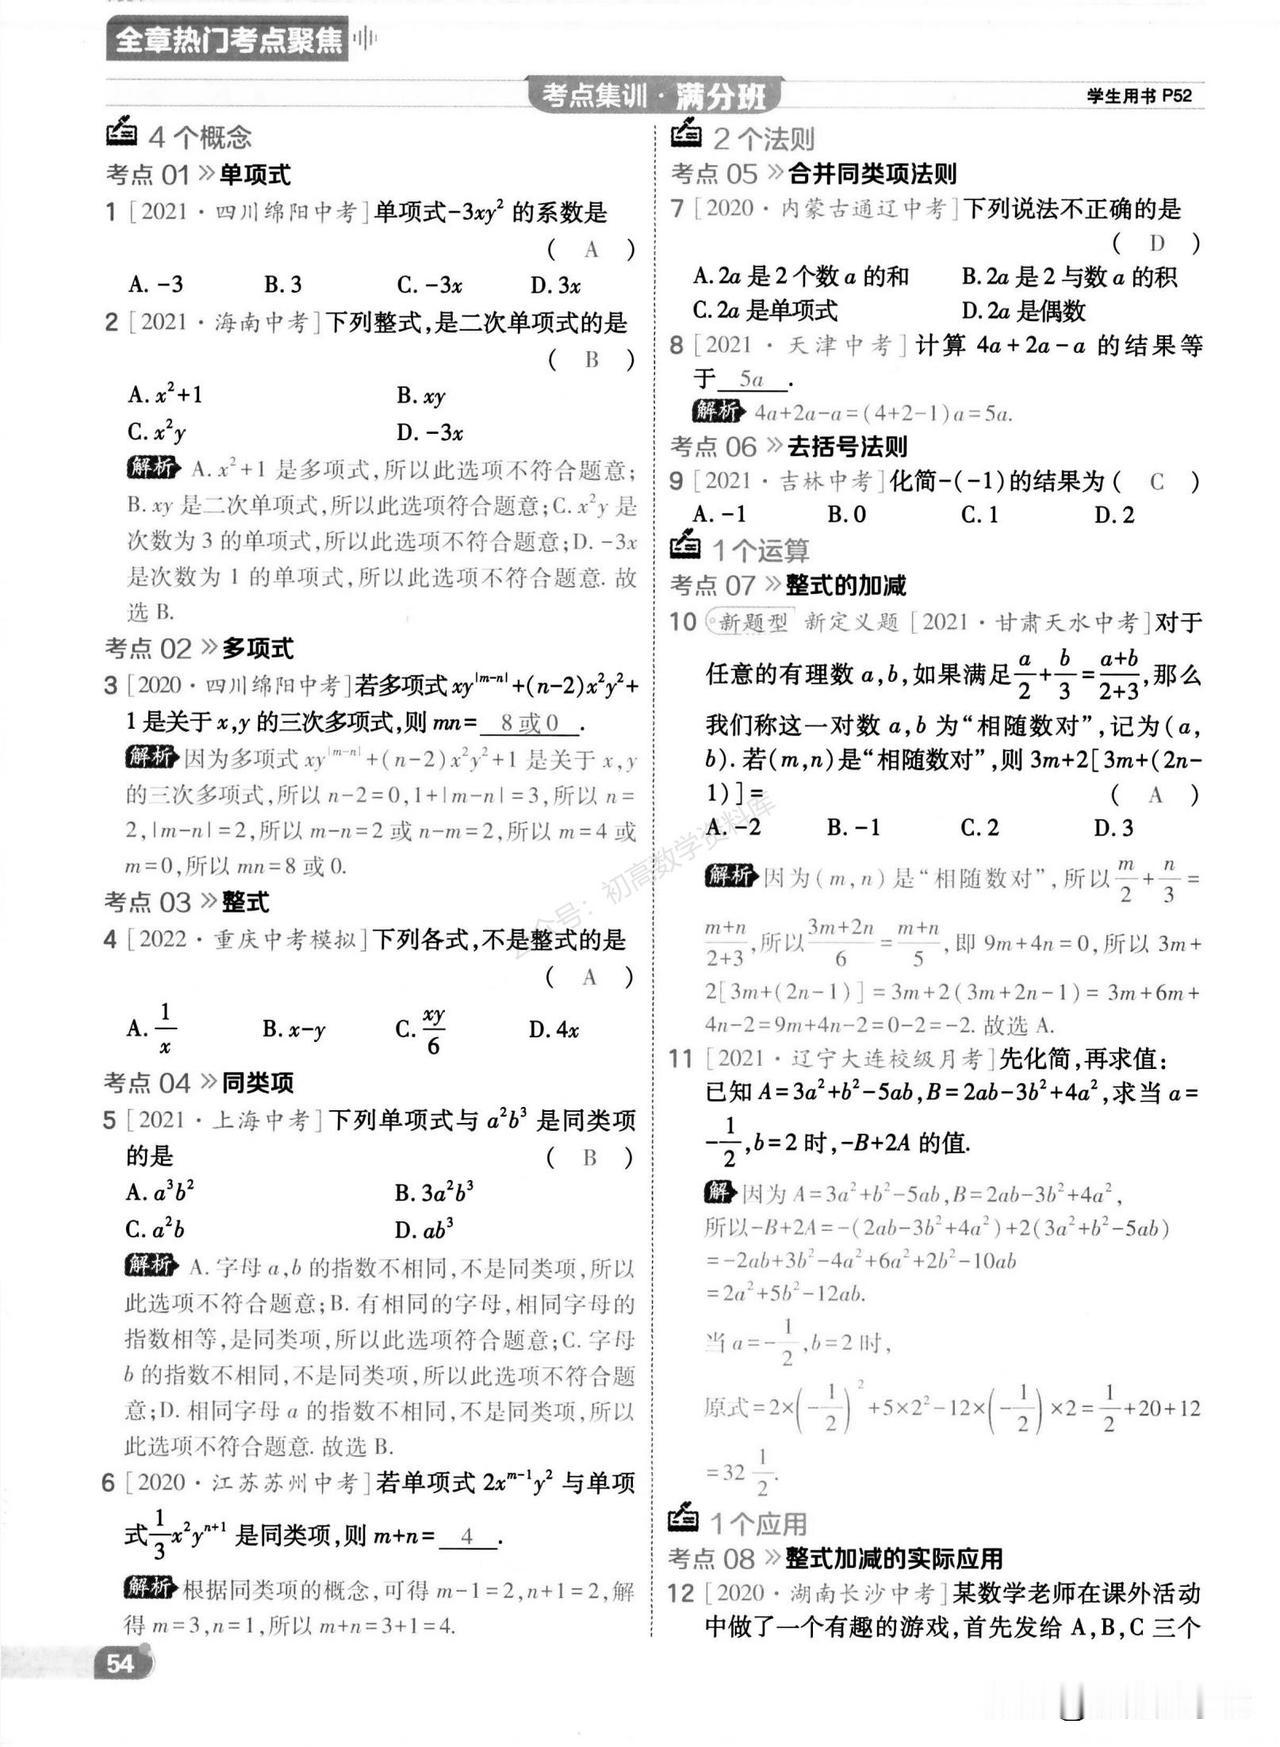 全章热门考点聚焦
考点集训·满分班
学生用书 P52
4个概念
考点 01 >> 单项式
1 [2021·四川绵阳中考]单项式-3xy² 的系数是
( A )
A. -3 B. 3 C. -3x D. 3x
2 [2021·海南中考]下列整式,是二次单项式的是
( B )
A. x²+1 B. xy
C. x²y D. -3x
解析 A. x²+1 是多项式,所以此选项不符合题意;
B. xy 是二次单项式,所以此选项符合题意;C. x²y 是
次数为 3 的单项式,所以此选项不符合题意;D. -3x
是次数为 1 的单项式,所以此选项不符合题意. 故
选 B.
考点 02 >> 多项式
3 [2020·四川绵阳中考]若多项式 xy^|m-n|+(n-2)x²y²+
1 是关于 x,y 的三次多项式,则 mn= 8或0 .
解析 因为多项式 xy^|m-n|+(n-2)x²y²+1 是关于 x,y
的三次多项式,所以 n-2=0,1+|m-n|=3,所以 n=
2,|m-n|=2,所以 m-n=2 或 n-m=2,所以 m=4 或
m=0,所以 mn=8 或 0.
考点 03 >> 整式
4 [2022·重庆中考模拟]下列各式,不是整式的是
( A )
A. 1/x B. x-y C. xy/6 D. 4x
考点 04 >> 同类项
5 [2021·上海中考]下列单项式与 a²b³ 是同类项
的是 ( B )
A. a³b² B. 3a²b³
C. a²b D. ab³
解析 A. 字母 a,b 的指数不相同,不是同类项,所以
此选项不符合题意;B. 有相同的字母,相同字母的
指数相等,是同类项,所以此选项符合题意;C. 字母
b 的指数不相同,不是同类项,所以此选项不符合题
意;D. 相同字母 a 的指数不相同,不是同类项,所以
此选项不符合题意. 故选 B.
6 [2020·江苏苏州中考]若单项式 2x^(m-1)y² 与单项
式 1/3 x²y^(n+1) 是同类项,则 m+n= 4 .
解析 根据同类项的概念,可得 m-1=2,n+1=2,解
得 m=3,n=1,所以 m+n=3+1=4.
54
2个法则
考点 05 >> 合并同类项法则
7 [2020·内蒙古通辽中考]下列说法不正确的是
( D )
A. 2a 是 2 个数 a 的和 B. 2a 是 2 与数 a 的积
C. 2a 是单项式 D. 2a 是偶数
8 [2021·天津中考]计算 4a+2a-a 的结果等
于 5a .
解析 4a+2a-a=(4+2-1)a=5a.
考点 06 >> 去括号法则
9 [2021·吉林中考]化简-(-1)的结果为 ( C )
A. -1 B. 0 C. 1 D. 2
1个运算
考点 07 >> 整式的加减
10 新题型 新定义题 [2021·甘肃天水中考]对于
任意的有理数 a,b,如果满足 a/2+b/3=(a+b)/(2+3),那么
我们称这一对数 a,b 为“相随数对”,记为(a,
b). 若(m,n)是“相随数对”,则 3m+2[3m+(2n-
1)]= ( A )
A. -2 B. -1 C. 2 D. 3
解析 因为(m,n)是“相随数对”,所以 m/2+n/3=
(m+n)/(2+3),所以 (3m+2n)/6=(m+n)/5,即 9m+4n=0,所以 3m+
2[3m+(2n-1)]=3m+2(3m+2n-1)=3m+6m+
4n-2=9m+4n-2=0-2=-2. 故选 A.
11 [2021·辽宁大连校级月考]先化简,再求值:
已知 A=3a²+b²-5ab,B=2ab-3b²+4a²,求当 a=
-1/2,b=2 时,-B+2A 的值.
解 因为 A=3a²+b²-5ab,B=2ab-3b²+4a²,
所以-B+2A=-(2ab-3b²+4a²)+2(3a²+b²-5ab)
=-2ab+3b²-4a²+6a²+2b²-10ab
=2a²+5b²-12ab.
当 a=-1/2,b=2 时,
原式=2×(-1/2)²+5×2²-12×(-1/2)×2=1/2+20+12
=32 1/2.
1个应用
考点 08 >> 整式加减的实际应用
12 [2020·湖南长沙中考]某数学老师在课外活动
中做了一个有趣的游戏,首先发给 A,B,C 三个
公众号：初高数学资料库